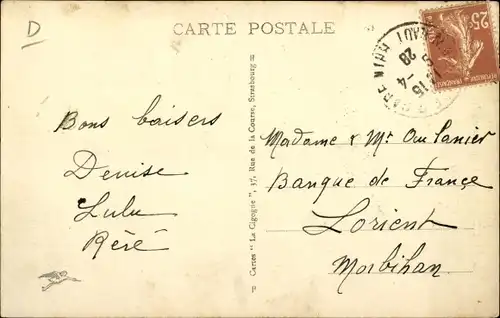 D
CARTE POSTALE
25c
28
15 4
Bons baisers
Denise
Lulu
Réré
Cartes "La Cigogne", 37, Rue de la Course, Strasbourg
Madame & Mr
Banque de France
Lorient
Morbihan